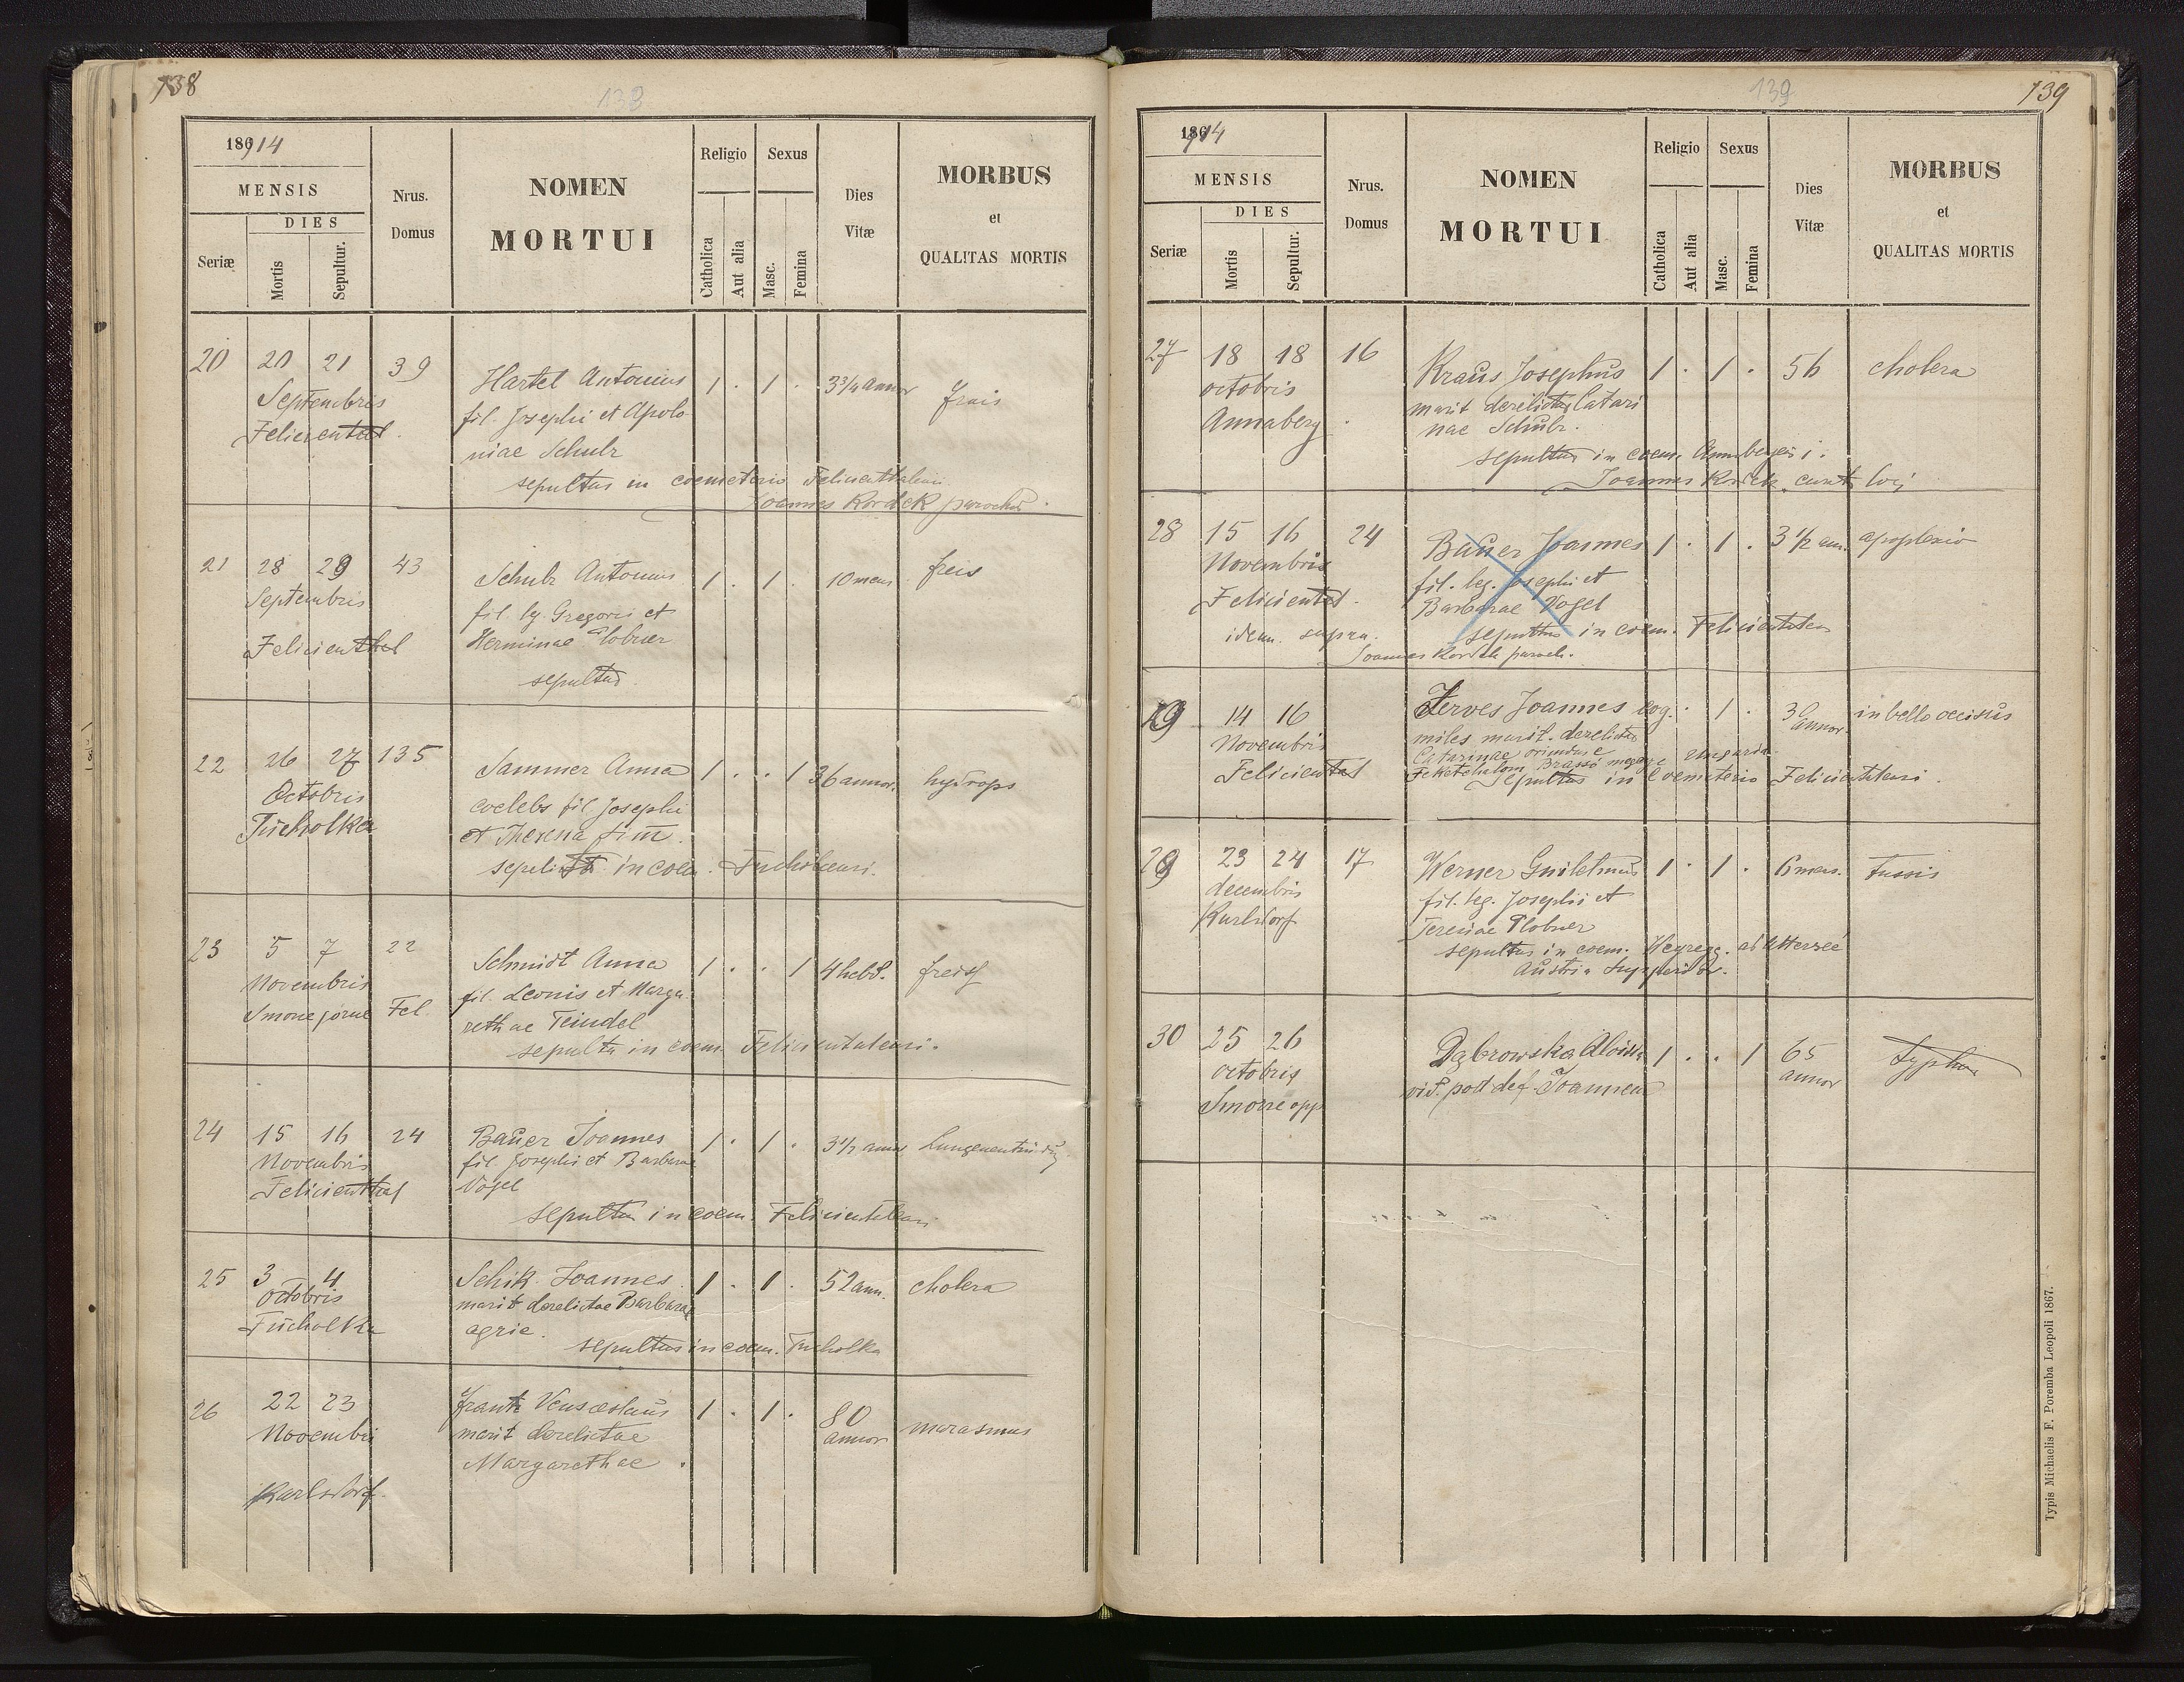 138
138
186914
MENSIS
DIES
Seriæ
Mortis
Sepultur.
Nrus.
Domus
NOMEN
MORTUI
Religio
Catholica
Aut alia
Sexus
Masc.
Femina
Dies
Vitæ
MORBUS
et
QUALITAS MORTIS
20 20 21 39 Hartel Antonius 1 . 1 . 3 3/4 annor frais
Septembris
Felicienthal
fil. Josephi et Apolo
niae Schulz
sepultus in coemeterio Felicienthaleni
Joannes Kordek parochus
21 28 29 43 Schulz Antonius 1 . 1 . 10 mens freis
Septembris
fil. leg Gregorii et
Felicienthal
Herminae Plobner
sepultus
22 26 27 135 Sammer Anna 1 . . 1 36 annor. hydrops
Octobris
Tucholka
coelebs fil. Josephi
et Theresia
in coem. Tucholcensi.
23 5 7 22 Schmidt Anna 1 . . 1 4 hebd. freis
Novembris
fil. Leonis et Marga
Smorzejorne Fel.
rethae Teindel
sepulta in coem. Felicientalensi.
24 15 16 24 Baŭer Joannes 1 . 1 . 3 1/2 annor Lungenentzündg
Novembris
fil. Josephi et Barbarae
Felicienthal
Vogel
sepultus in coem. Felicienthalensi
25 3 4 Schik Joannes 1 . 1 . 52 ann. cholera
octobris
marit derelictae Barbarae
Tucholka
agric.
sepultus in coem. Tucholka
26 22 23 Frantz Venceslaus 1 . 1 . 80 annor marasmus
Novembris
marit derelictae
Margarethae
Karlsdorf
139
139
186914
MENSIS
DIES
Seriæ
Mortis
Sepultur.
Nrus.
Domus
NOMEN
MORTUI
Religio
Catholica
Aut alia
Sexus
Masc.
Femina
Dies
Vitæ
MORBUS
et
QUALITAS MORTIS
27 18 18 16 Kraŭs Josephŭs 1 . 1 . 56 cholera
octobris
marit derelictus Catari
Annaberg
nae Schŭlz.
sepultus in coem. Annabergensi.
Joannes Kordek
28 15 16 24 Baŭer Joannes 1 . 1 . 3 1/2 ann. apoplexio
Novembris
fil. leg. Josephi et
Feliciental
Barbarae Vogel
idem. supra.
sepultus in coem. Felicientalen
Joannes Kordek paroch.
29 14 16 Joannes . 1 . 36 annor in bello occisus
Novembris
miles marit. derelictus
Catarinae oriundus e
Feliciental
Brassó megye Ungaria
Sepultus in Coemeterio Felicientalensi.
29 23 24 17 Werner Guilelmus 1 . 1 . 6 mens. tussis
decembris
fil. leg. Josephi et
Karlsdorf
Teresiae Plobner
sepultus in coem. Weyregg. ad Attersee
Austria Superior.
30 25 26 Dąbrowska Aloisia 1 . . 1 65 annor typhus
octobris
vid. post def. Joannem
Smorze opp
Typis Michaelis F. Poremba Leopoli 1867.